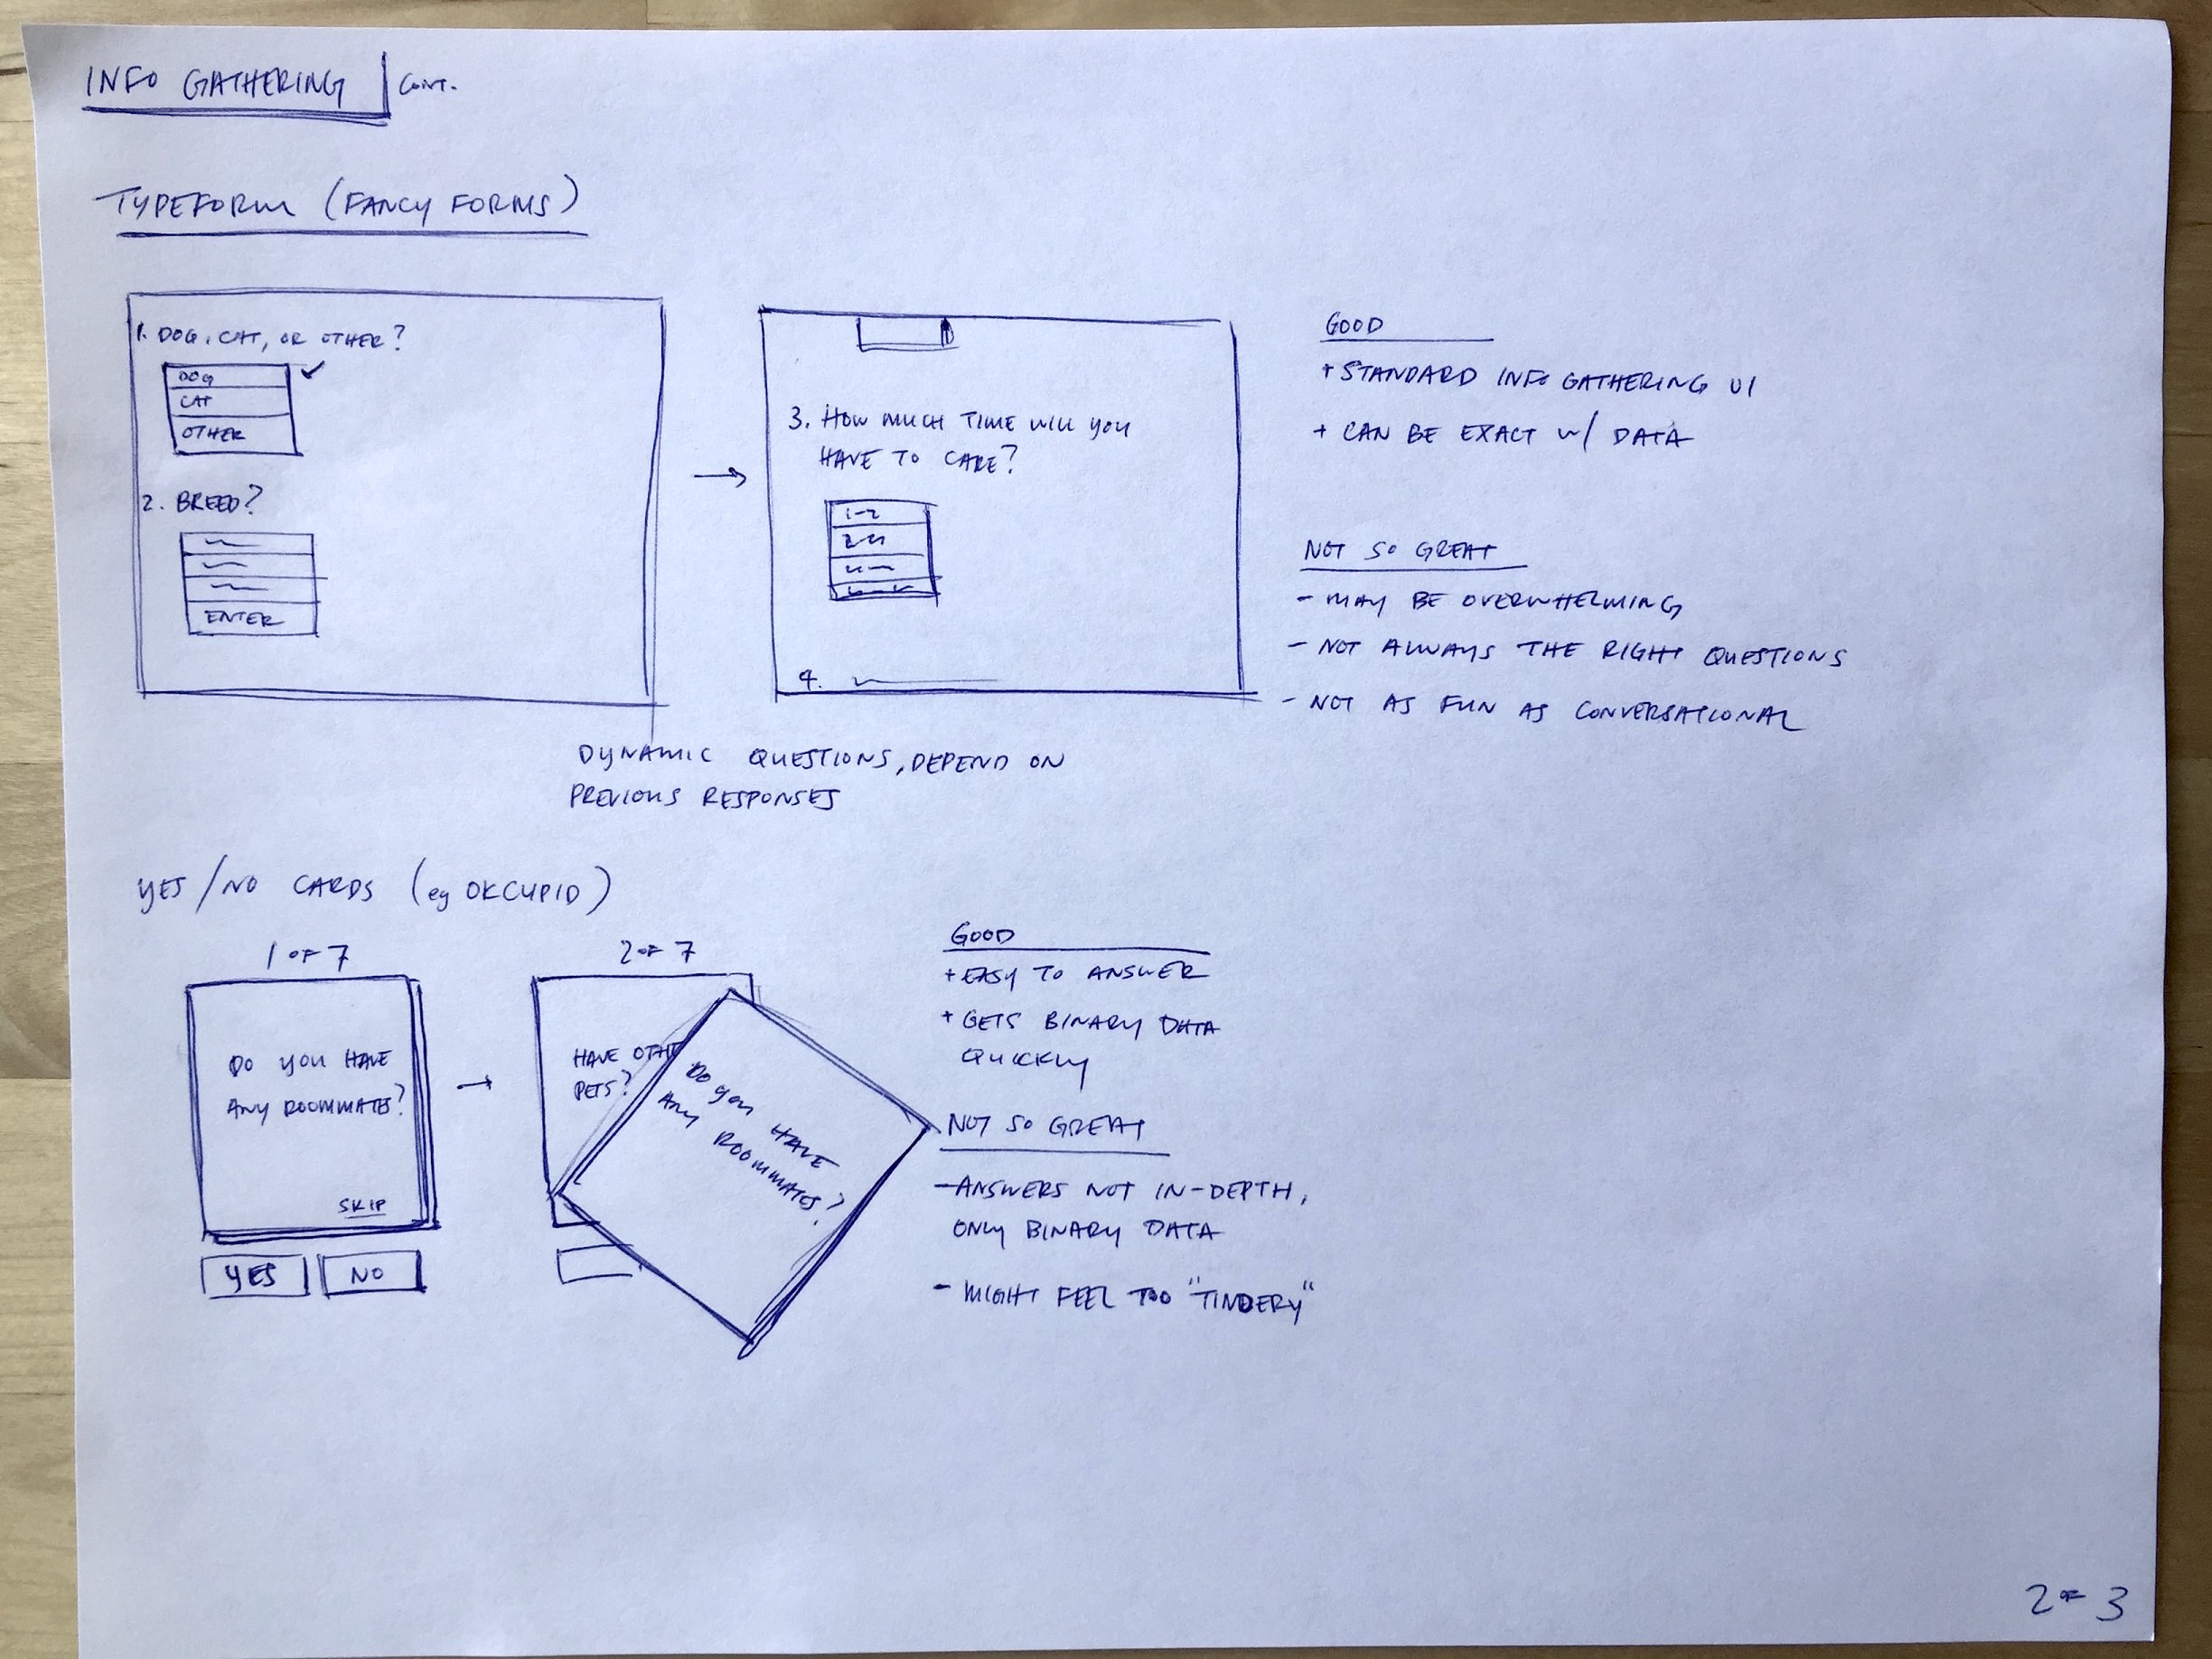 INFO GATHERING CONT.
TYPEFORM (FANCY FORMS)
1. DOG, CAT, OR OTHER?
DOG
CAT
OTHER
2. BREED?
ENTER
3. HOW MUCH TIME WILL YOU
HAVE TO CARE?
1-2
4.
DYNAMIC QUESTIONS, DEPEND ON
PREVIOUS RESPONSES
GOOD
+ STANDARD INFO GATHERING UI
+ CAN BE EXACT W/ DATA
NOT SO GREAT
- MAY BE OVERWHELMING
- NOT ALWAYS THE RIGHT QUESTIONS
- NOT AS FUN AS CONVERSATIONAL
YES/NO CARDS (eg OKCUPID)
1 OF 7
DO YOU HAVE
ANY ROOMMATES?
SKIP
YES NO
2 OF 7
HAVE OTHE
PETS?
DO YOU HAVE
ANY ROOMMATES?
GOOD
+ EASY TO ANSWER
+ GETS BINARY DATA
QUICKLY
NOT SO GREAT
- ANSWERS NOT IN-DEPTH,
ONLY BINARY DATA
- MIGHT FEEL TOO "TINDERY"
2 OF 3